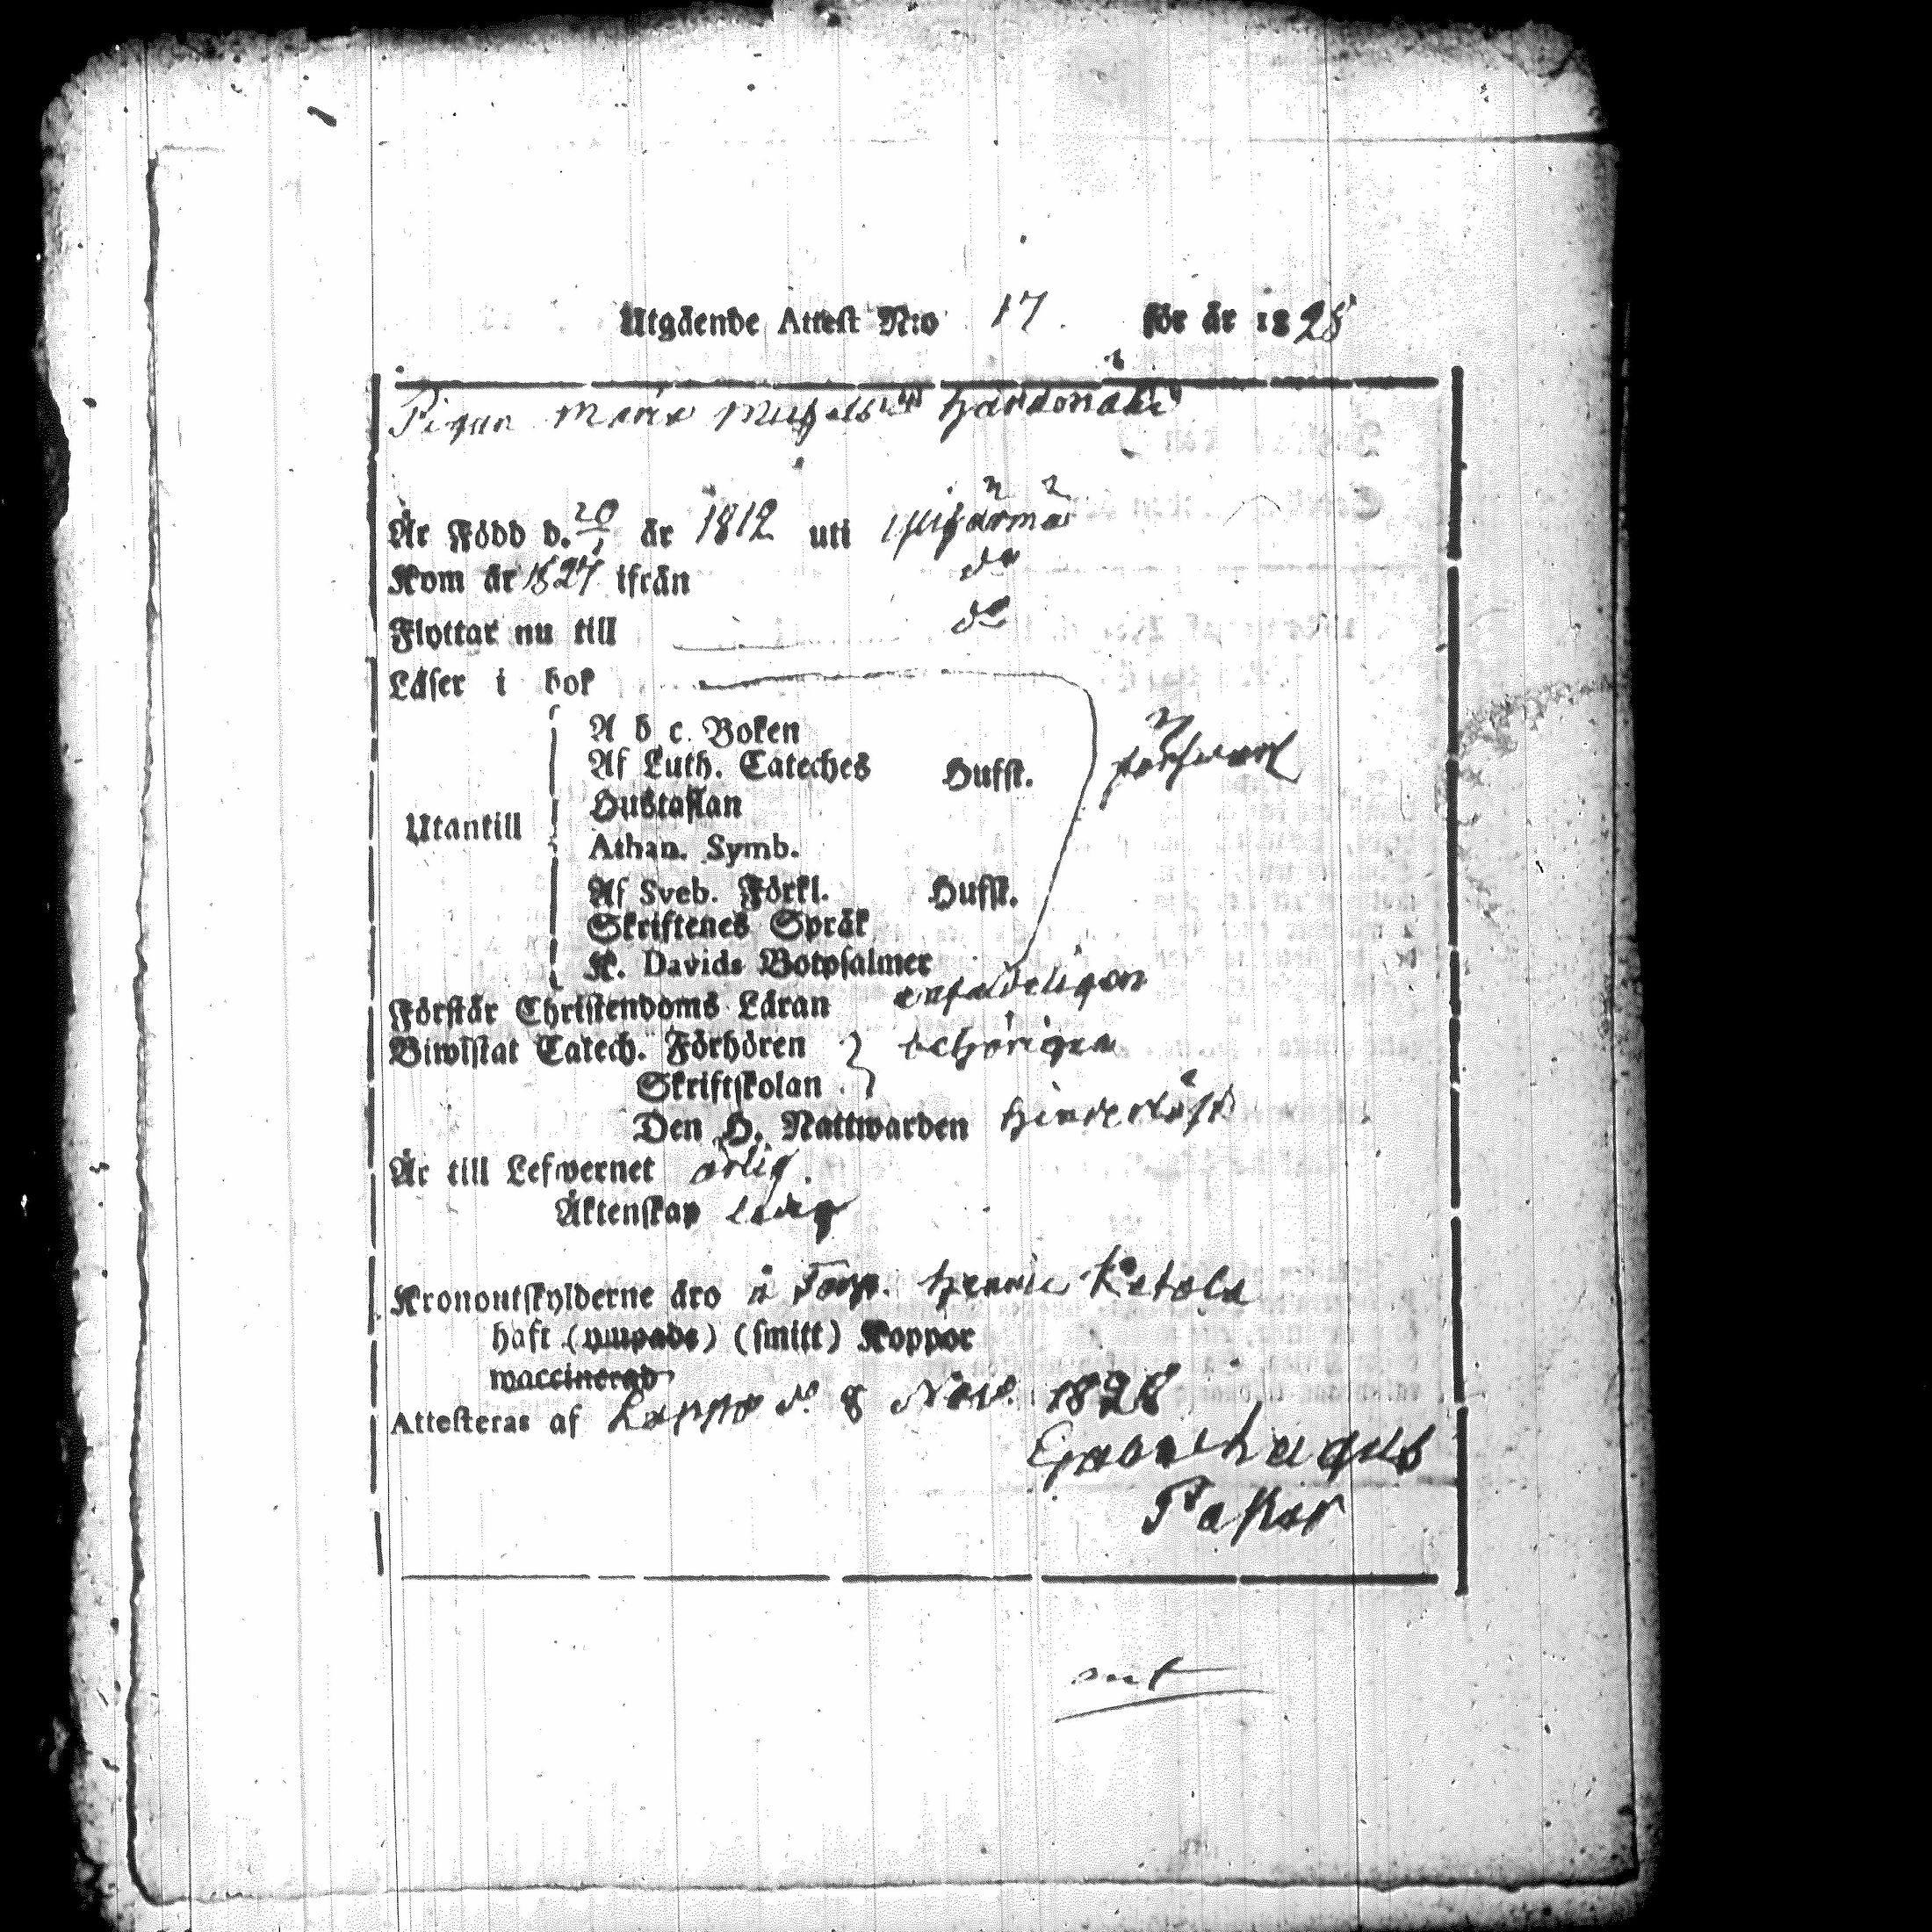 Utgående Attest N:o 17. för år 1828
Pigan Maria Michelsdr Härdönäki
Är Född d. 20/1 år 1812 uti Ylihärmä
Kom år 1827 ifrån do
Flyttar nu till do
Läser i bok
A b c. Boken
Af Luth. Cateches Hufst.
försvarl
Hustaflan
Utantill
Athan. Symb.
Af Sveb. Förkl. Hufst.
Skriftenes Språk
K. Davids Botpsalmer
Förstår Christendoms Läran enfaldeligen
Biwistat Catech. Förhören behörigen
Skriftskolan
Den H. Nattwarden hinderlöst
Är till Lefwernet ärlig.
Äktenskap ledig
Kronoutskylderne äro å Torp. Henric Ketola
haft (ympade) (smitt) Koppor
waccinerad
Attesteras af Lappo d. 8 Nov. 1828
Pastor